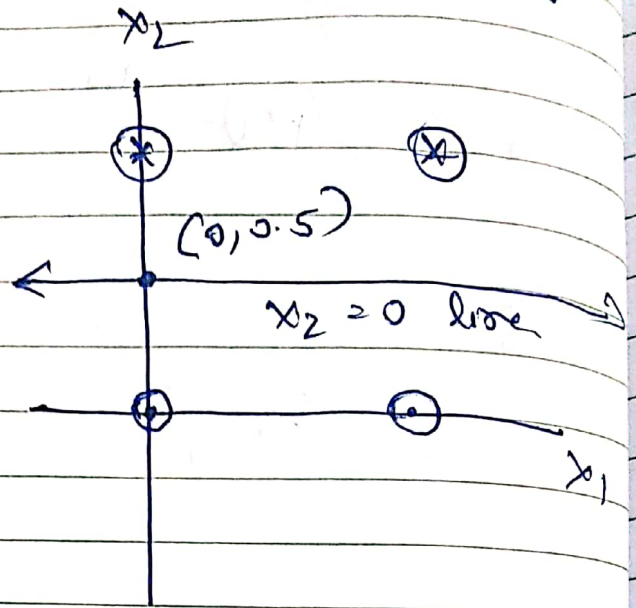 x₂
(0, 0.5)
x₂ = 0 line
x₁